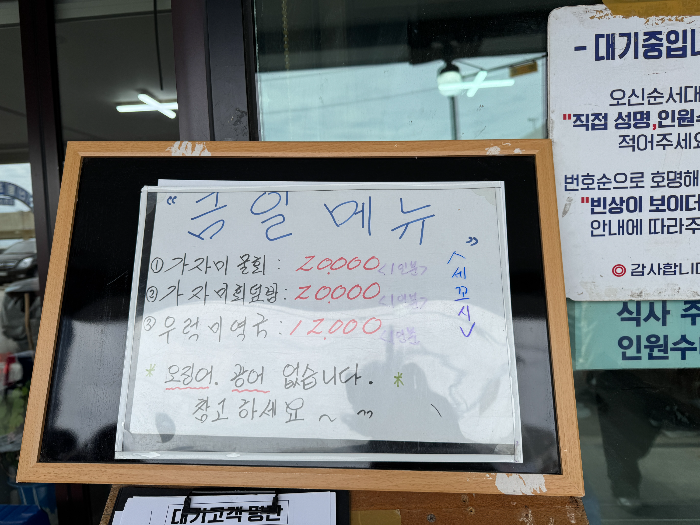 "금일 메뉴"
① 가자미 물회 : 20,000 <1인분>
② 가자미회덮밥 : 20,000 <1인분>
③ 우럭미역국 : 12,000 <1인분>
<세꼬시>
* 오징어. 광어 없습니다. *
참고하세요 ~
대기고객 명단
- 대기중입니
오신순서대
"직접 성명,인원수
적어주세요
번호순으로 호명해
"빈상이 보이더
안내에 따라주
◎ 감사합니다
식사 주
인원수